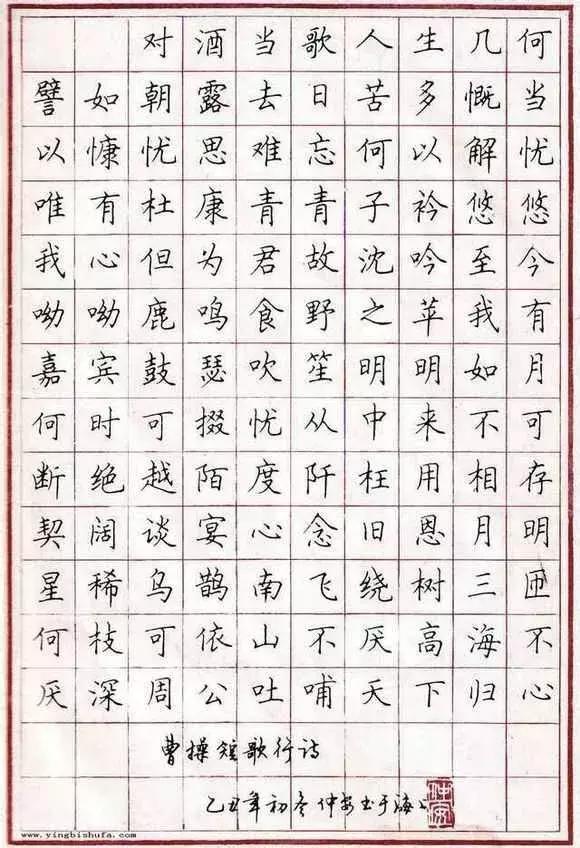 对酒当歌人生几何
譬如朝露去日苦多慨当
以慷忧思难忘何以解忧
唯有杜康青青子衿悠悠
我心但为君故沈吟至今
呦呦鹿鸣食野之苹我有
嘉宾鼓瑟吹笙明明如月
何时可掇忧从中来不可
断绝越陌度阡枉用相存
契阔谈宴心念旧恩月明
星稀乌鹊南飞绕树三匝
何枝可依山不厌高海不
厌深周公吐哺天下归心
曹操短歌行诗
乙丑年初冬仲安书于海
www.yingbishufa.com